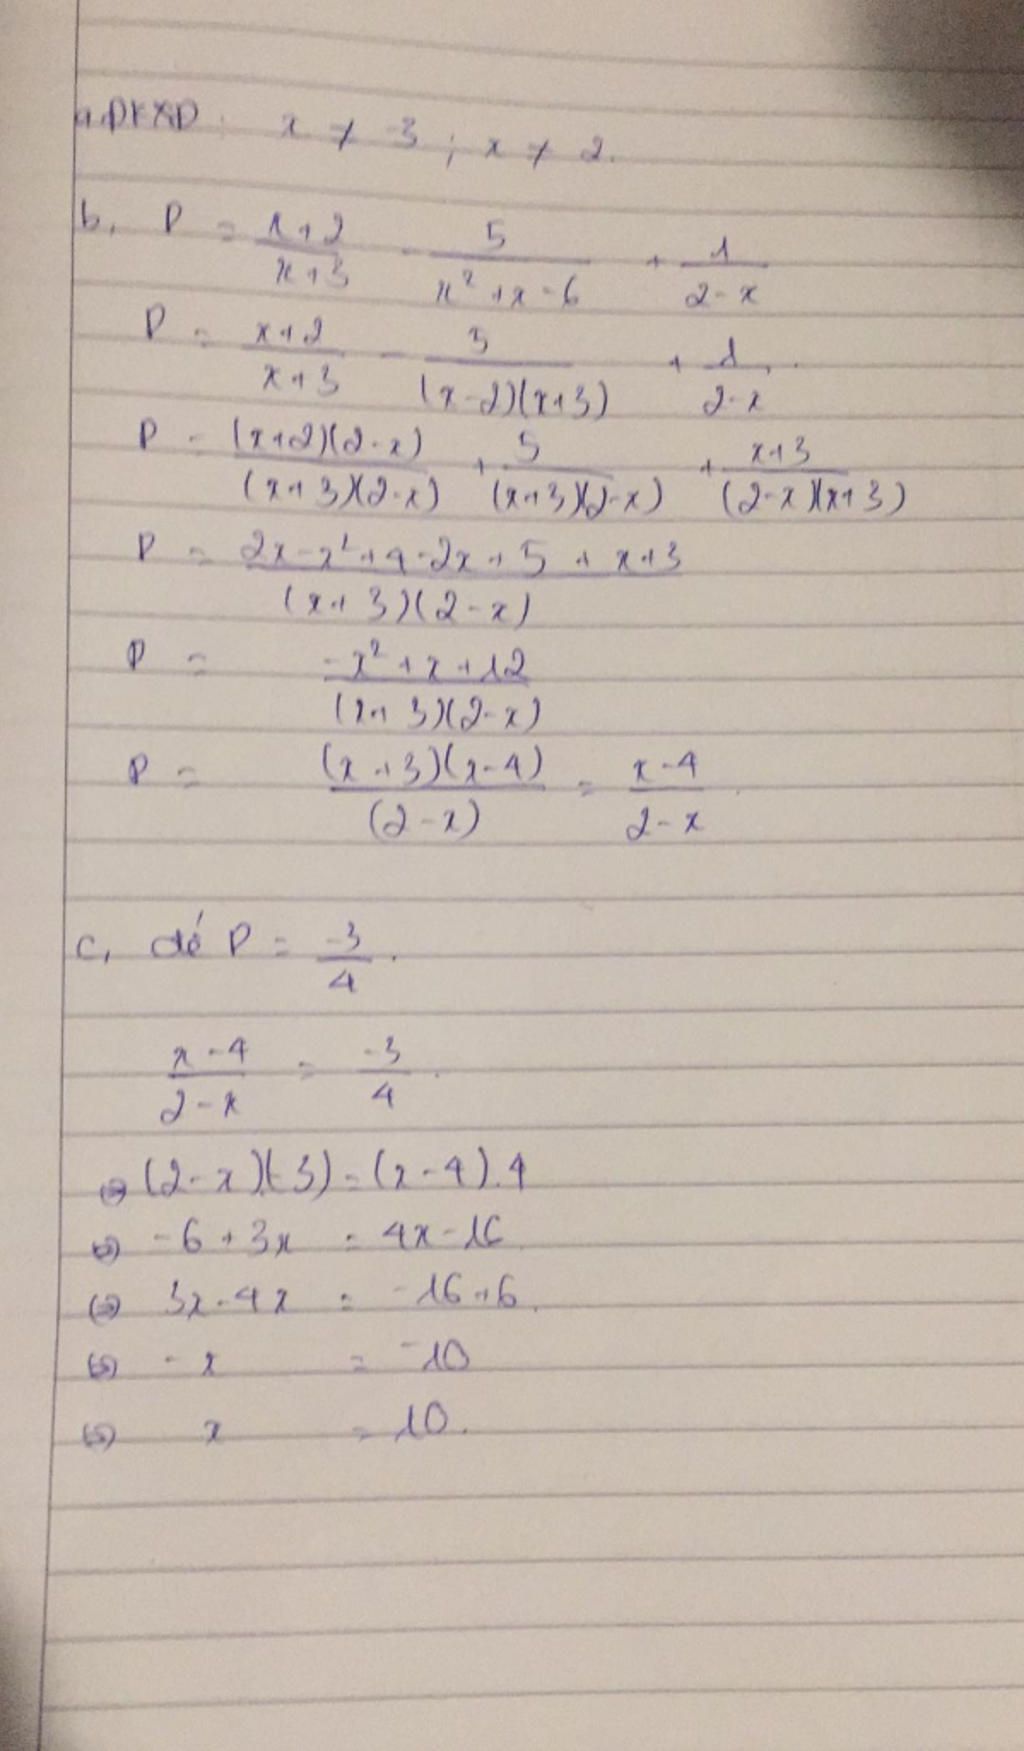 a. ĐKXĐ: x ≠ -3 ; x ≠ 2.
b, P = (x+2)/(x+3) - 5/(x²+x-6) + 1/(2-x)
P = (x+2)/(x+3) - 3/((x-2)(x+3)) + 1/(2-x)
P = ((x+2)(2-x))/((x+3)(2-x)) + 5/((x+3)(2-x)) + (x+3)/((2-x)(x+3))
P = (2x-x²+4-2x+5+x+3)/((x+3)(2-x))
P = (-x²+x+12)/((x+3)(2-x))
P = ((x+3)(x-4))/(2-x) = (x-4)/(2-x).
c, để P = -3/4.
(x-4)/(2-x) = -3/4.
⇔ (2-x)(-3) = (x-4).4
⇔ -6+3x = 4x-16
⇔ 3x-4x = -16+6.
⇔ -x = -10
⇔ x = 10.